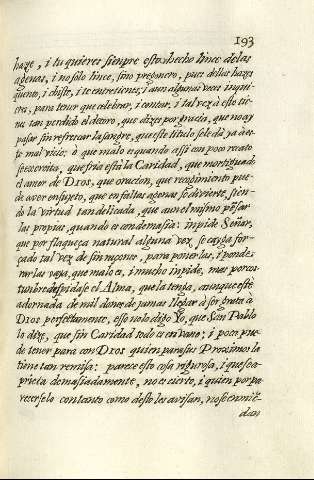 193
haze, i tu quieres siempre esto, hecho lince de las
agenas, i no sólo lince, sino pregonero, pues dellas hazes
quento, i chiste, i te entretienes, i aun algunas vezes inqui-
eres, para tener que celebrar, i contar, i tal vez à esto tie-
nes tan perdido el decoro, que dizes por gracia, que no ay
pasar sin refrescar la sangre, que este titulo se le dà ya à es-
te mal vicio; ò que malo i quando assi con poco recato
se exercita, que fria està la Caridad, que mortiguado
el amor de DIOS, que oracion, que recogimiento pue-
de aver en sujeto, que en faltas agenas se divierte, sien-
do la virtud tan delicada, que aun el mismo pẽsar
las proprias, quando es con demasia: inpide Señor,
que por flaqueza natural alguna vez se cayga for-
çado tal vez de sin niçono, para ponerlas, i ponde-
rarlas vaya, que malo es, i mucho inpide, mas por cos-
tunbre despidase el Alma, que la tenga, aunque estè
adornada de mil dones de jamas llegar à ser grata à
DIOS perfectamente, esto no lo digo Yo, que San Pablo
lo dize, que sin Caridad todo es en vano; i poco pue-
de tener para con DIOS quien para sus Proximos la
tiene tan remisa: parece esto cosa rigurosa, i que se a-
prieta demasiadamente, no es cierto, i quien por pa-
recerselo con tanto como desto les avisan, no se enmiẽ-
dan